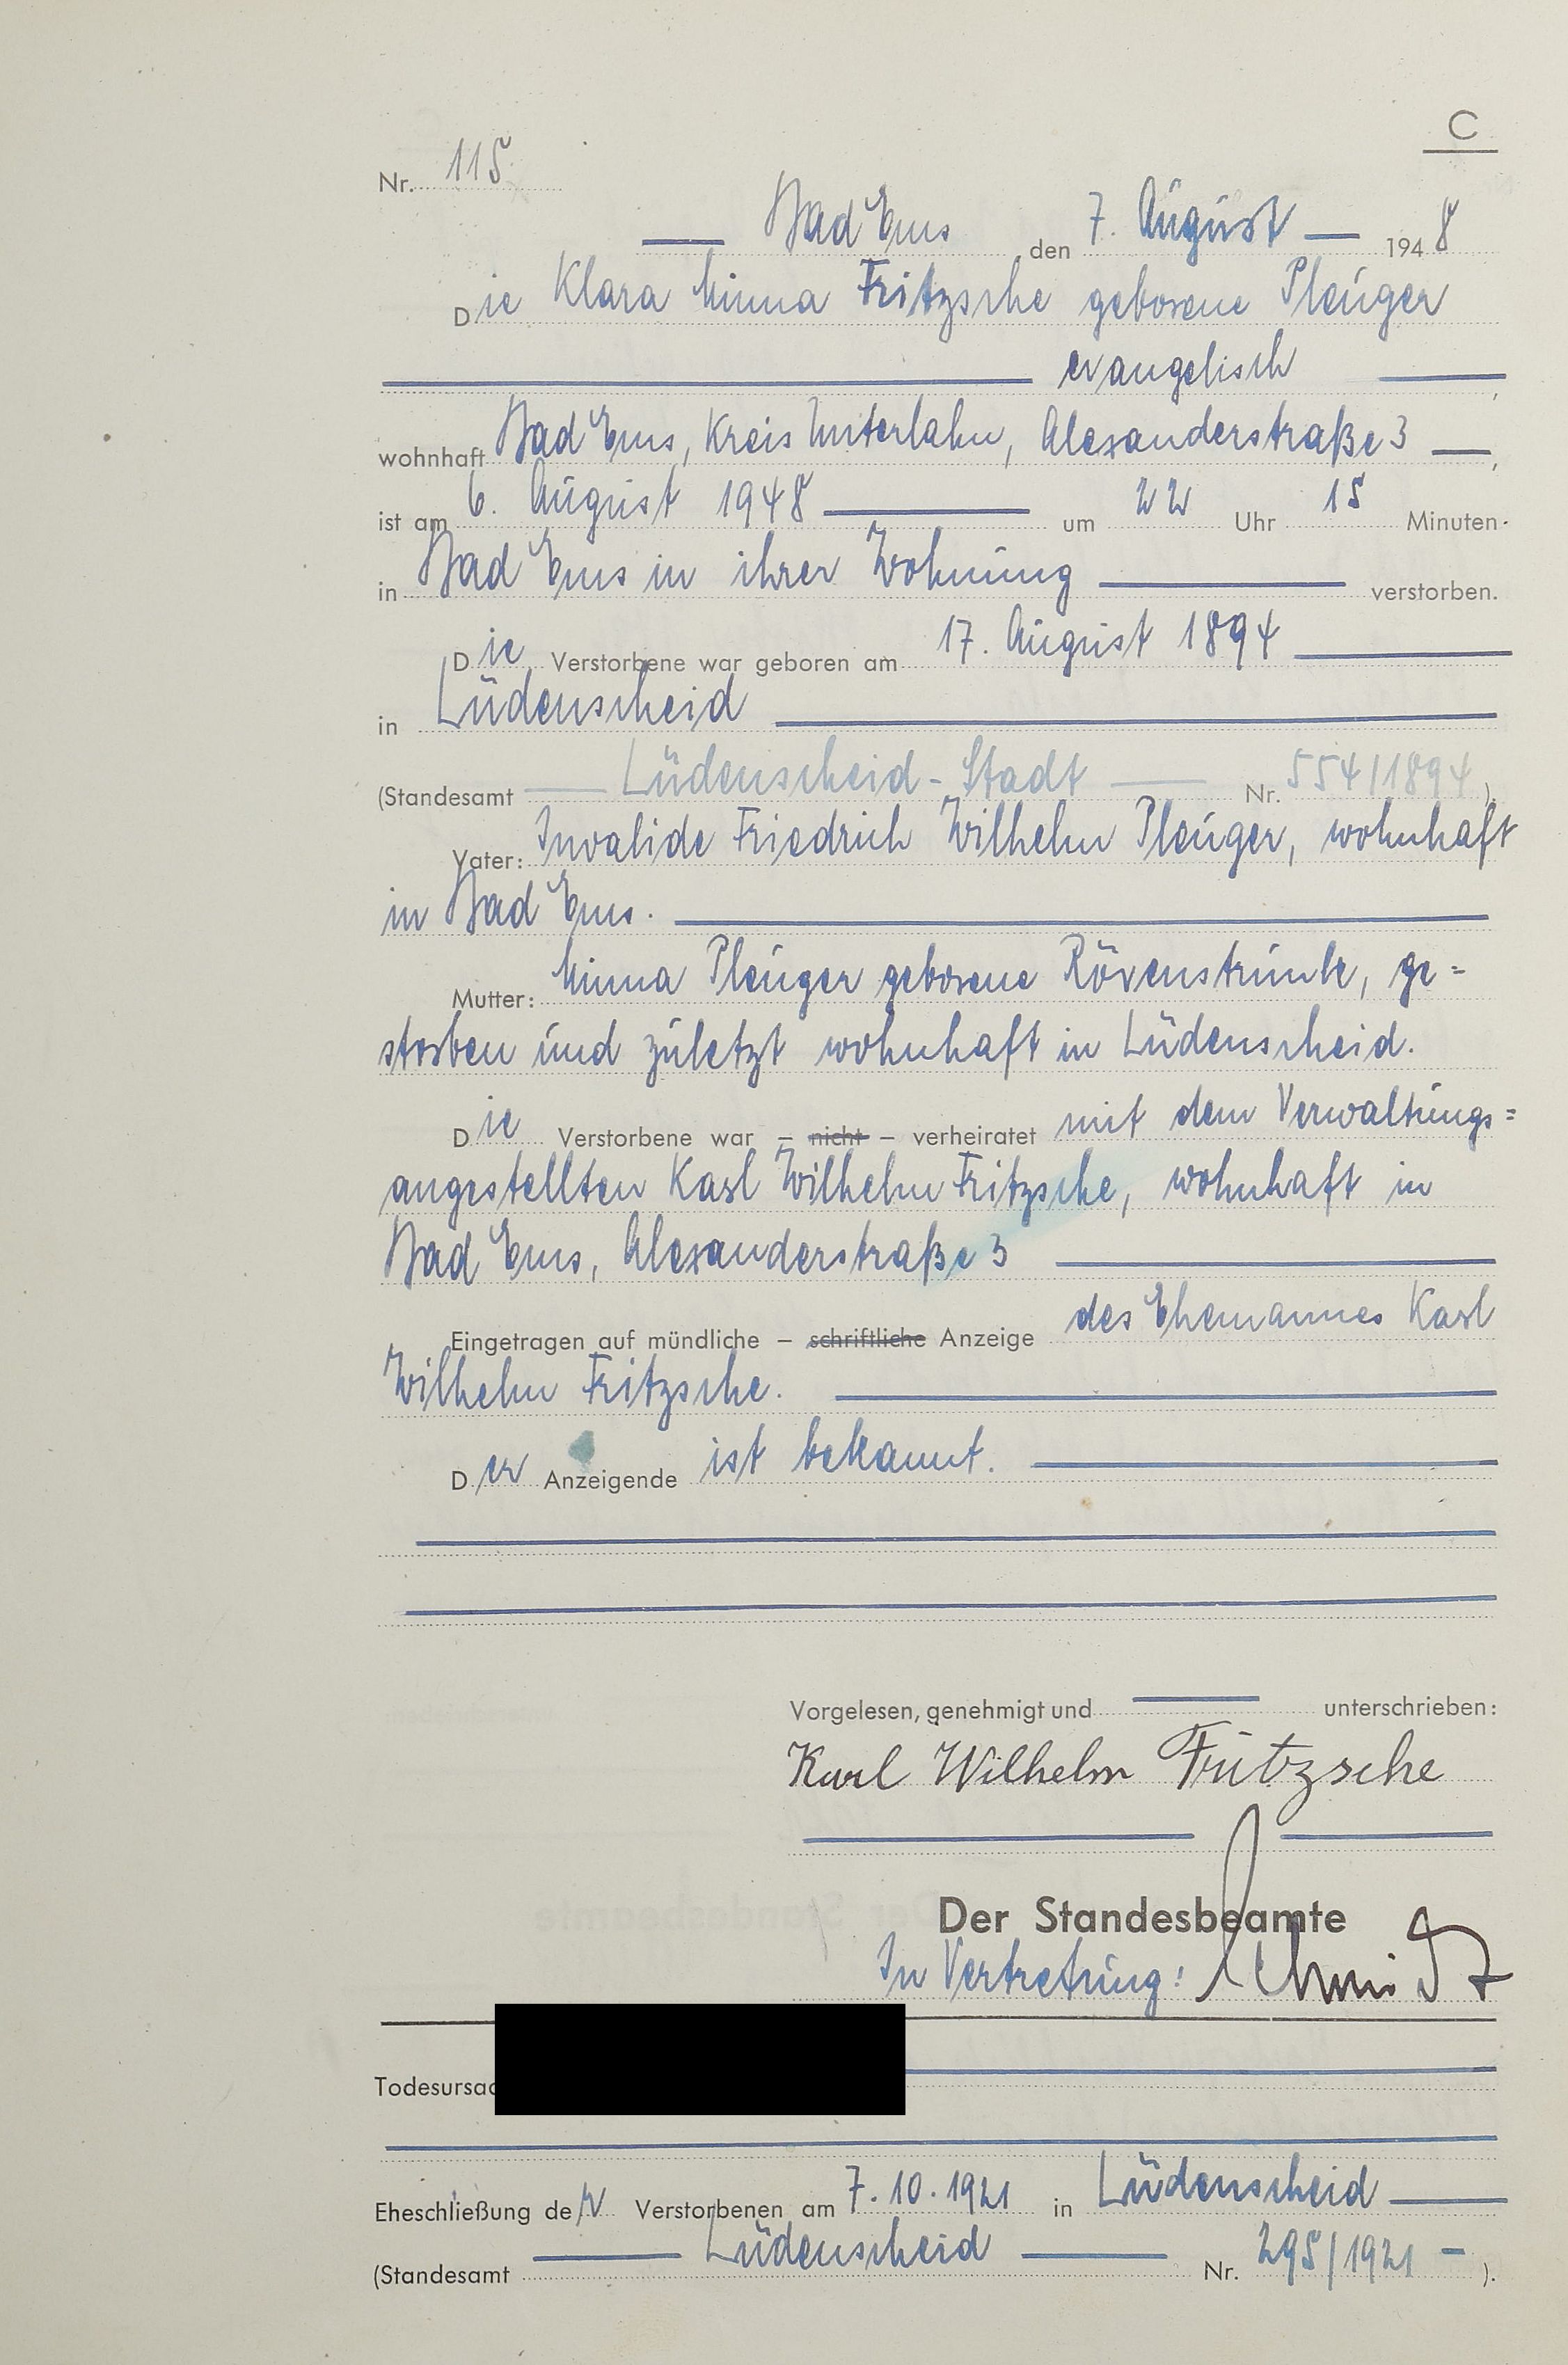 C
Nr. 115
Bad Ems den 7. August 1948
Die Klara Minna Fritzsche geborene Pleuger
evangelisch ,
wohnhaft Bad Ems, Kreis Unterlahn, Alexanderstraße 3 ,
ist am 6. August 1948 um 22 Uhr 15 Minuten
in Bad Ems in ihrer Wohnung verstorben.
Die Verstorbene war geboren am 17. August 1894
in Lüdenscheid
(Standesamt Lüdenscheid-Stadt Nr. 554/1894 )
Vater: Invalide Friedrich Wilhelm Pleuger, wohnhaft
in Bad Ems.
Mutter: Minna Pleuger geborene Rövenstrunk, ge=
storben und zuletzt wohnhaft in Lüdenscheid.
Die Verstorbene war – nicht – verheiratet mit dem Verwaltungs=
angestellten Karl Wilhelm Fritzsche, wohnhaft in
Bad Ems, Alexanderstraße 3
Eingetragen auf mündliche – schriftliche Anzeige des Ehemannes Karl
Wilhelm Fritzsche.
Der Anzeigende ist bekannt.
Vorgelesen, genehmigt und unterschrieben:
Karl Wilhelm Fritzsche
Der Standesbeamte
In Vertretung: Schmidt
Todesursac
Eheschließung der Verstorbenen am 7.10.1921 in Lüdenscheid
(Standesamt Lüdenscheid Nr. 295/1921 – ).